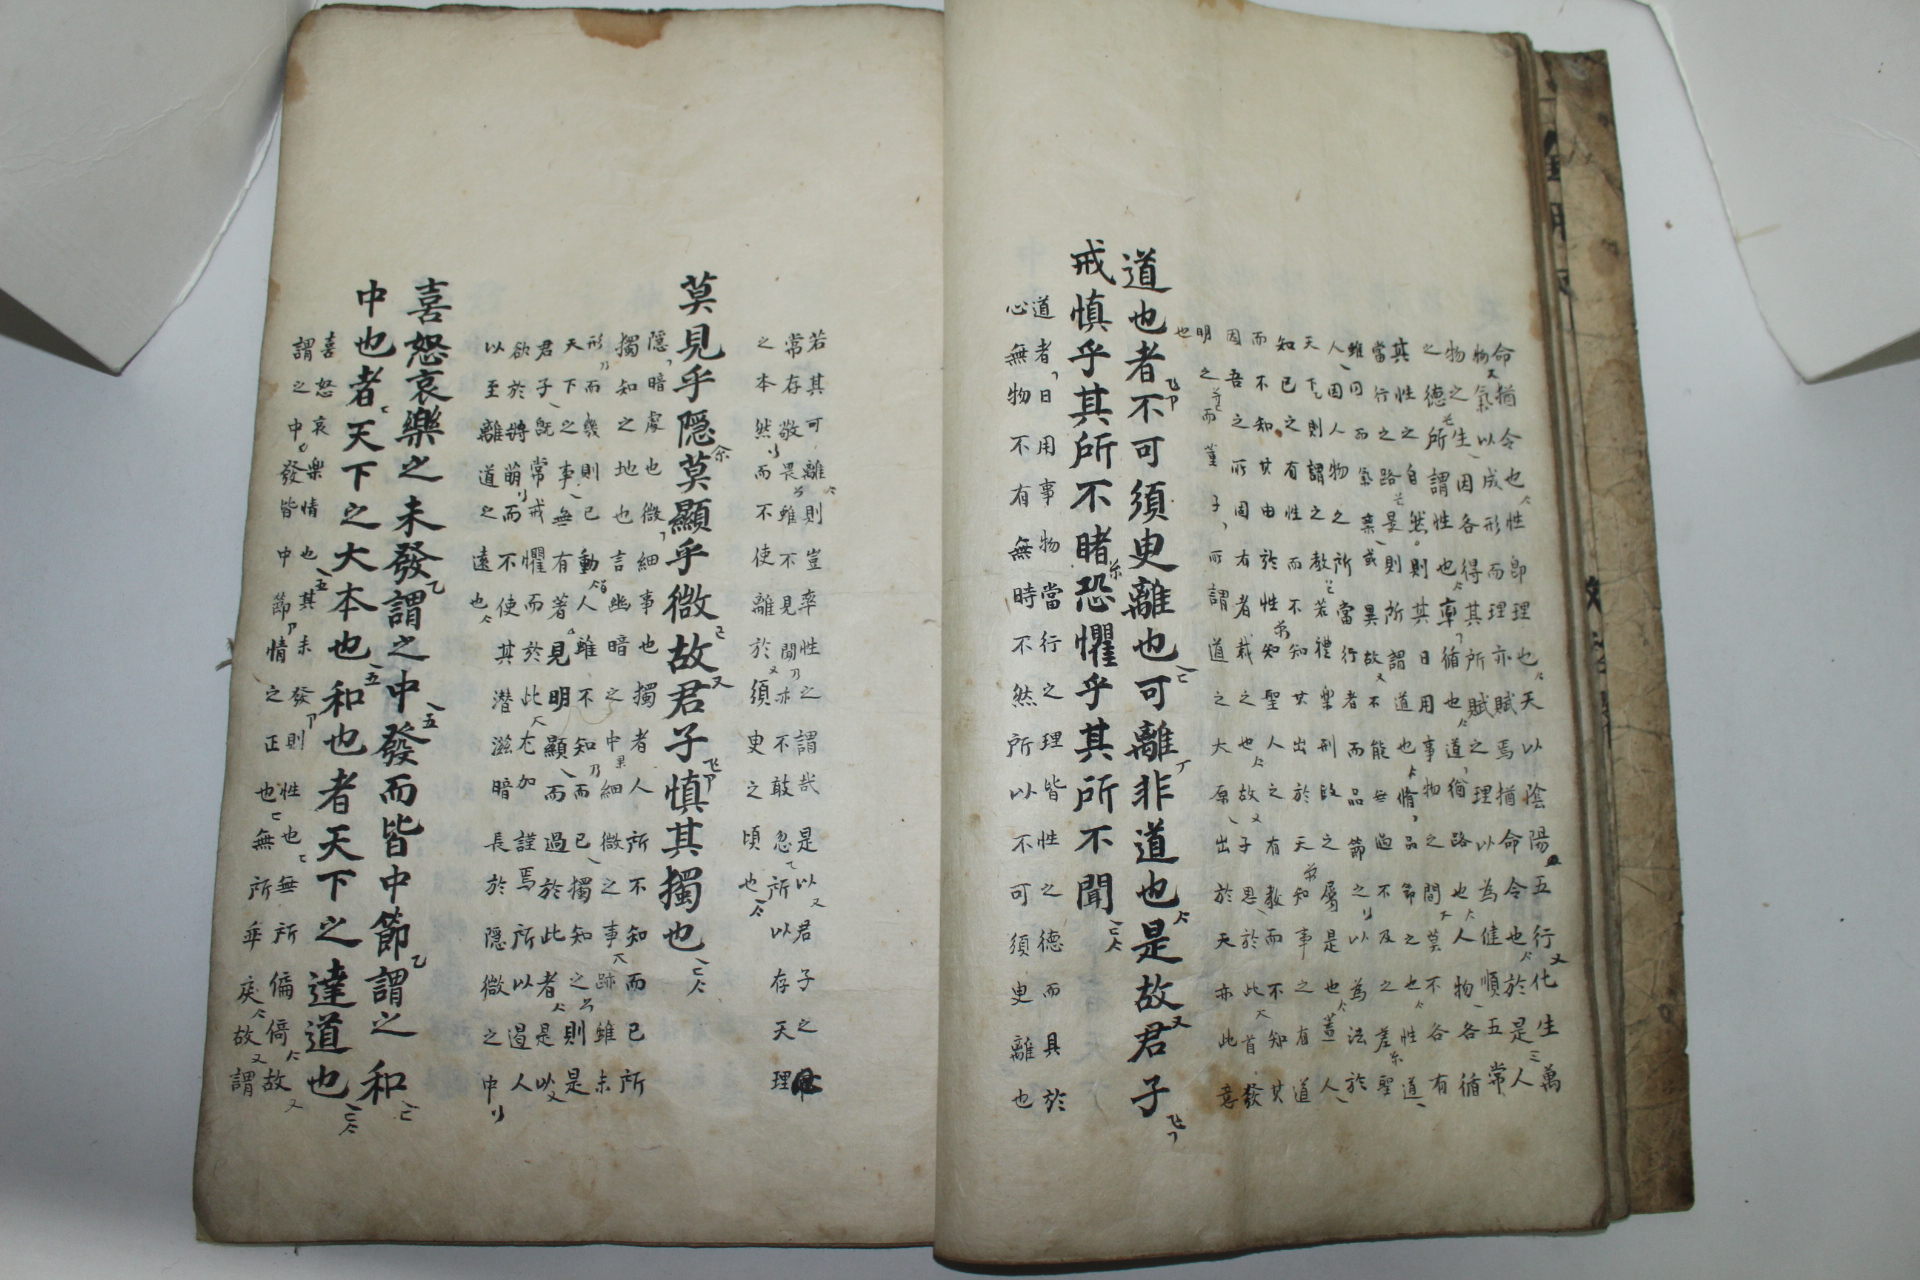 命猶令也性即理也天以陰陽五行化生萬
物氣以成形而理亦賦焉猶命令也於是人
物之生因各得其所賦之理以為健順五常
之德所謂性也率循也道猶路也人物各循
其性之自然則其日用事物之間莫不各有
當行之路是則所謂道也脩品節之也性道
雖同而氣稟或異故不能無過不及之差聖
人因人物之所當行者而品節之以為法於
天下則謂之教若禮樂刑政之屬是也蓋人
知己之有性而不知其出於天知事之有道
而不知其由於性知聖人之有教而不知其
因吾之所固有者裁之也故子思於此首發
明之而董子所謂道之大原出於天亦此意
也
道也者不可須臾離也可離非道也是故君子
戒慎乎其所不睹恐懼乎其所不聞
道者日用事物當行之理皆性之德而具於
心無物不有無時不然所以不可須臾離也
若其可離則豈率性之謂哉是以君子之
常存敬畏雖不見聞亦不敢忽所以存天理
之本然而不使離於須臾之頃也
莫見乎隱莫顯乎微故君子慎其獨也
隱暗處也微細事也獨者人所不知而已所
獨知之地也言幽暗之中細微之事跡雖未
形而幾則已動人雖不知而已獨知之則是
天下之事無有著見明顯而過於此者是以
君子既常戒懼而於此尤加謹焉所以遏人
欲於將萌而不使其潜滋暗長於隱微之中
以至離道之遠也
喜怒哀樂之未發謂之中發而皆中節謂之和
中也者天下之大本也和也者天下之達道也
喜怒哀樂情也其未發則性也無所偏倚故
謂之中發皆中節情之正也無所乖戾故謂